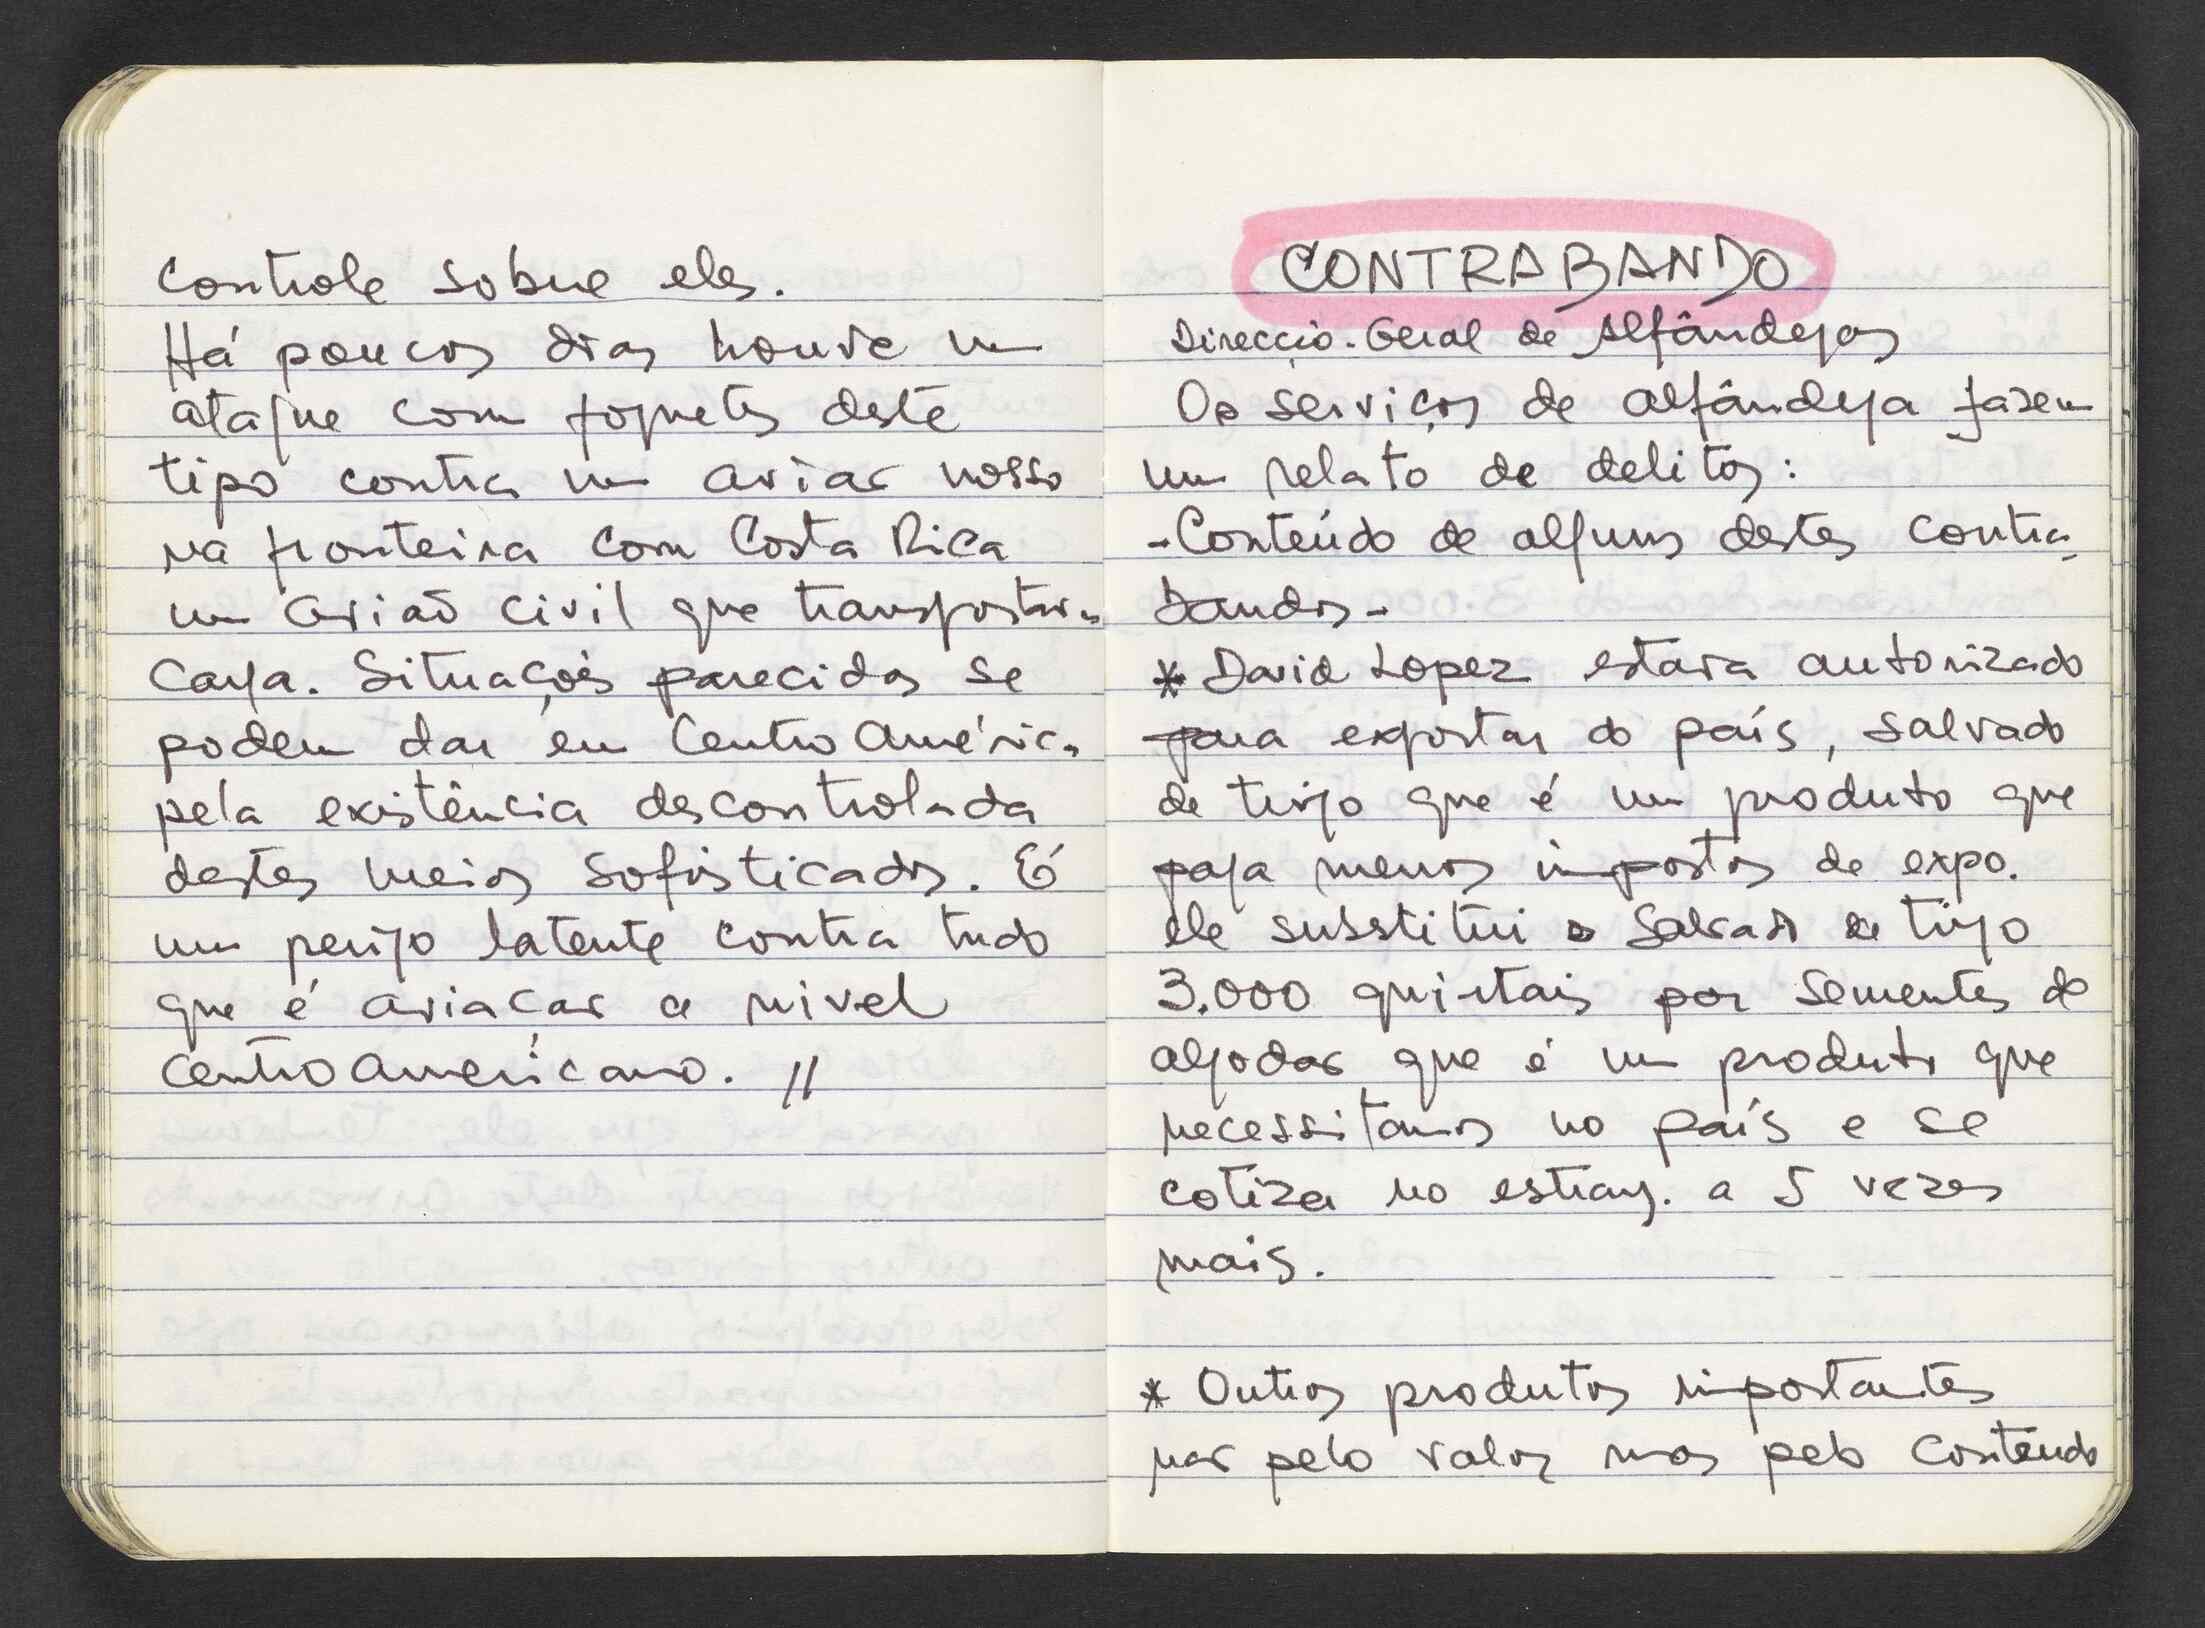 controle sobre eles.
Há poucos dias houve um
ataque com foguetes deste
tipo contra um avião nosso
na fronteira com Costa Rica
um avião civil que transportava
carga. Situações parecidas se
podem dar em Centro América
pela existência descontrolada
destes meios sofisticados. É
um perigo latente contra tudo
que é aviação a nivel
centroamericano. //
CONTRABANDO
Direcção-Geral de Alfândegas
Os serviços de alfândega fazem
um relato de delitos:
-Conteúdo de alguns destes contra-
bandos-
* David Lopez estava autorizado
para exportar do país, salvado
de trigo que é um produto que
paga menos impostos de expo.
ele substitui o salvado de trigo
3.000 quintais por sementes de
algodão que é um produto que
necessitamos no país e se
cotiza no estrang. a 5 vezes
mais.
* Outros produtos importantes
não pelo valor mas pelo conteúdo